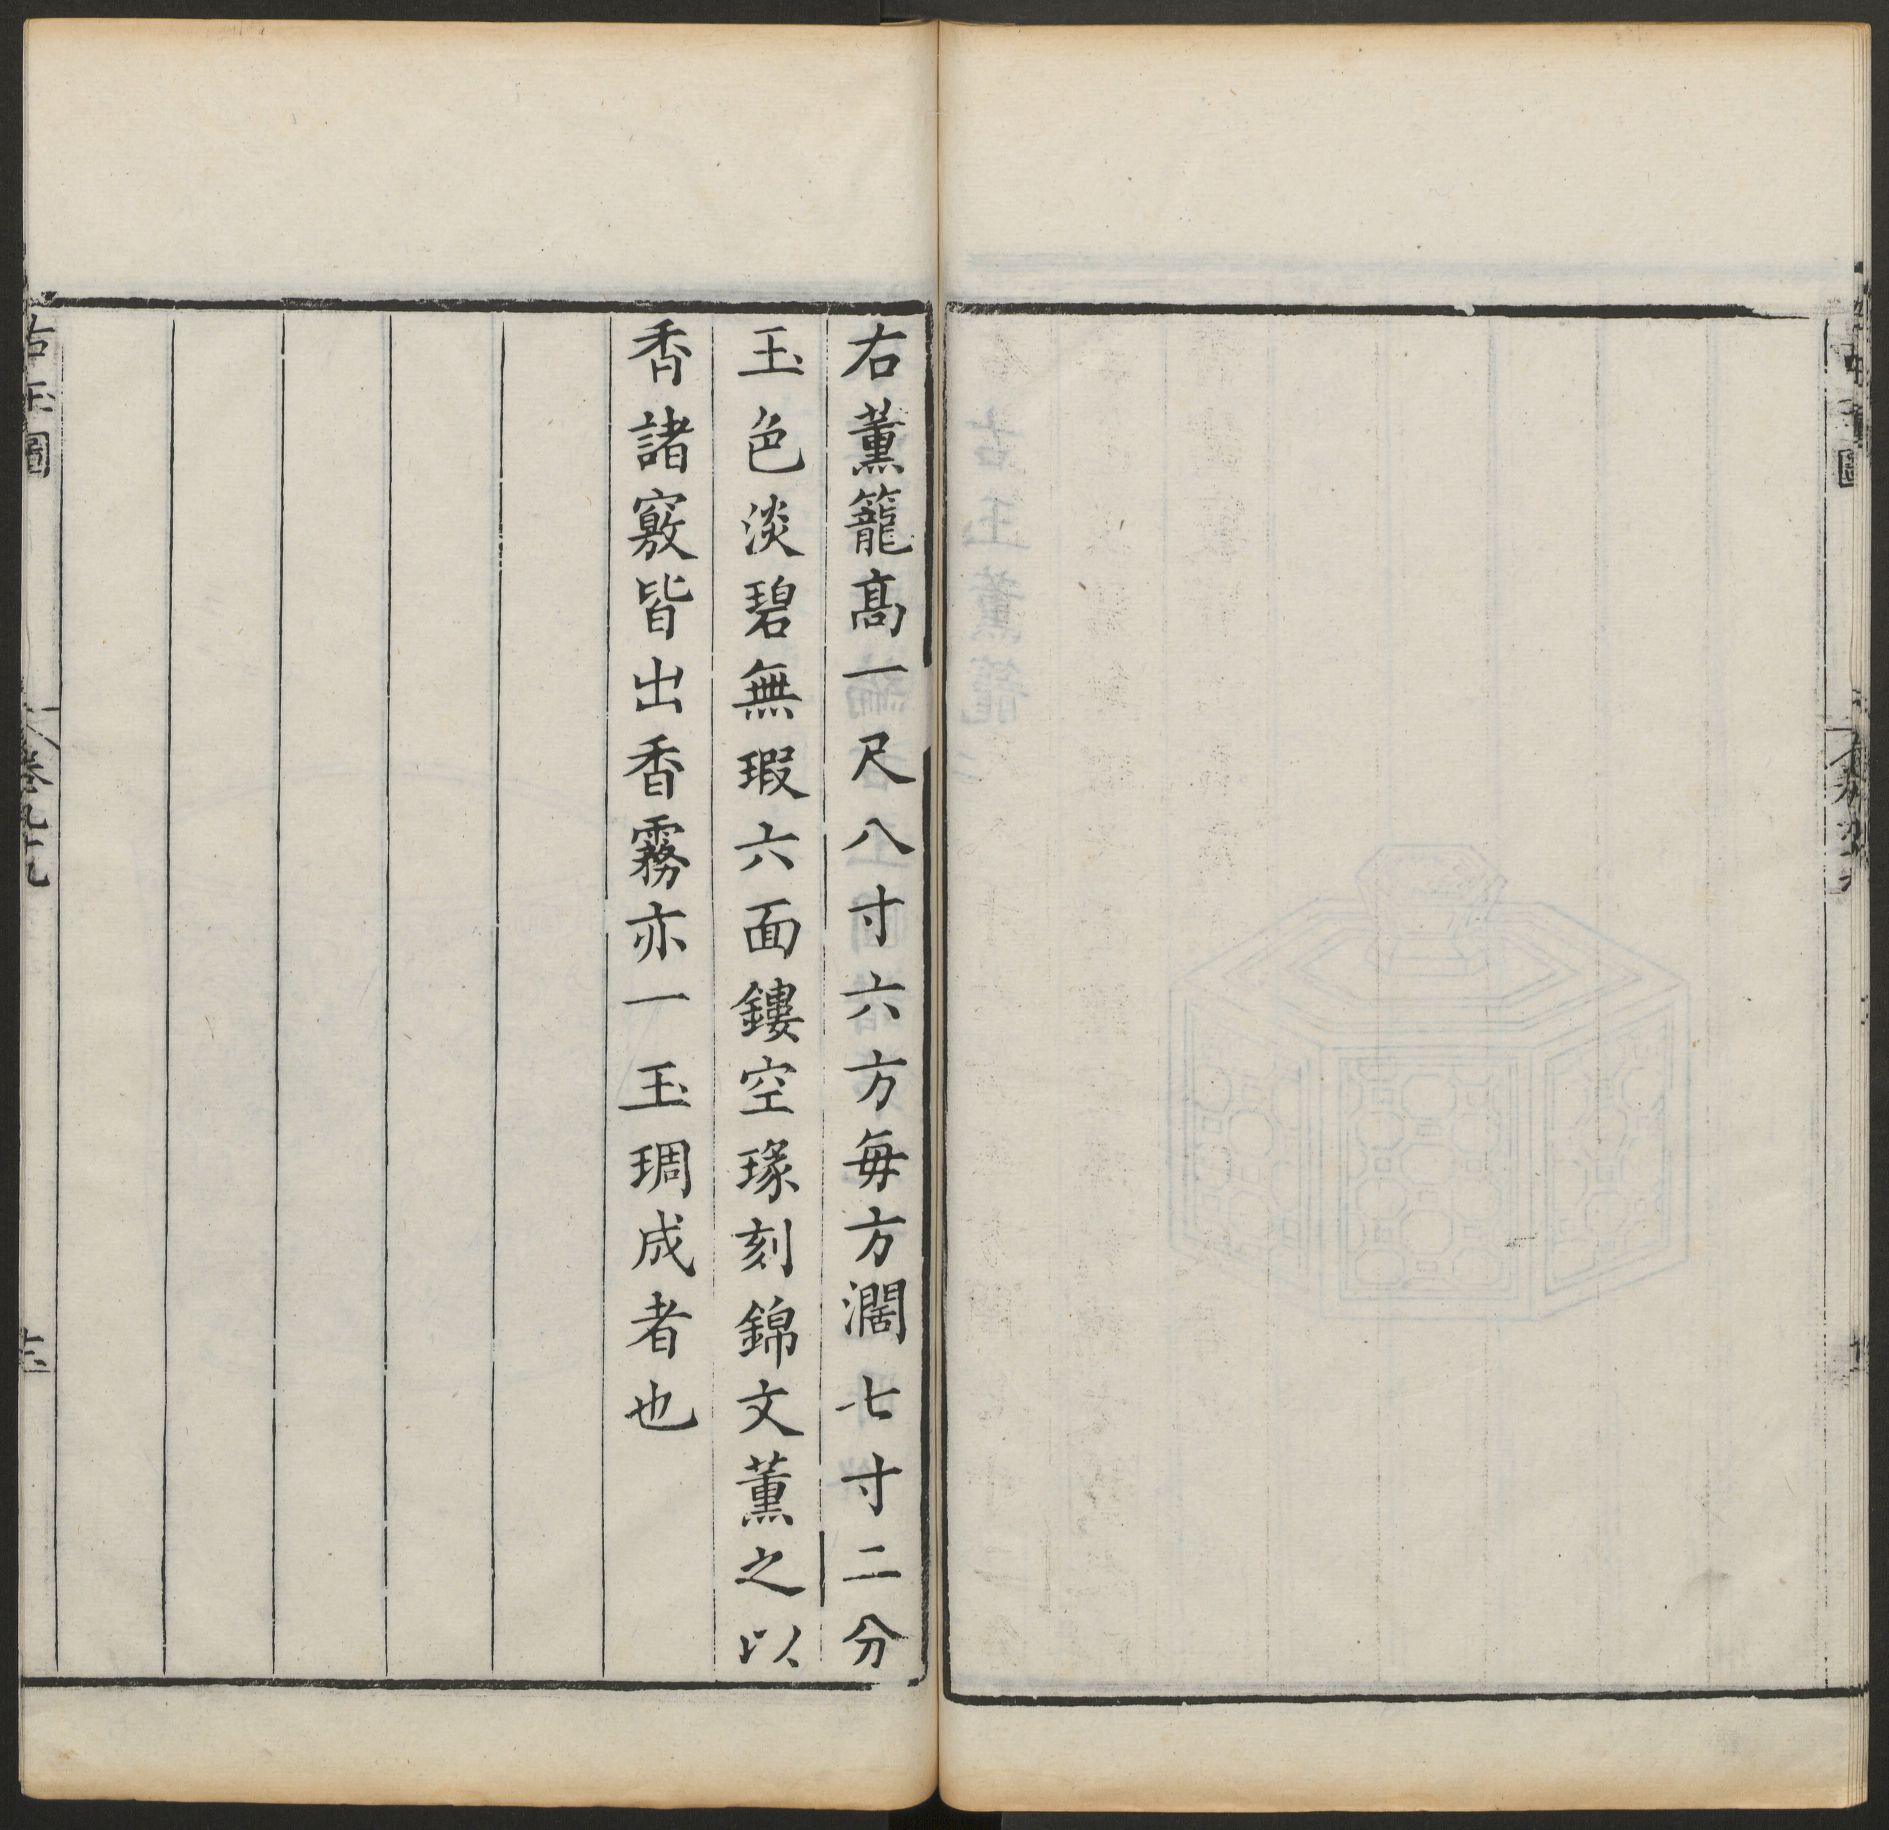 右薰籠高一尺八寸六方每方濶七寸二分
玉色淡碧無瑕六面鏤空瑑刻錦文薰之以
香諸竅皆出香霧亦一玉琱成者也
古玉圖
卷九十九